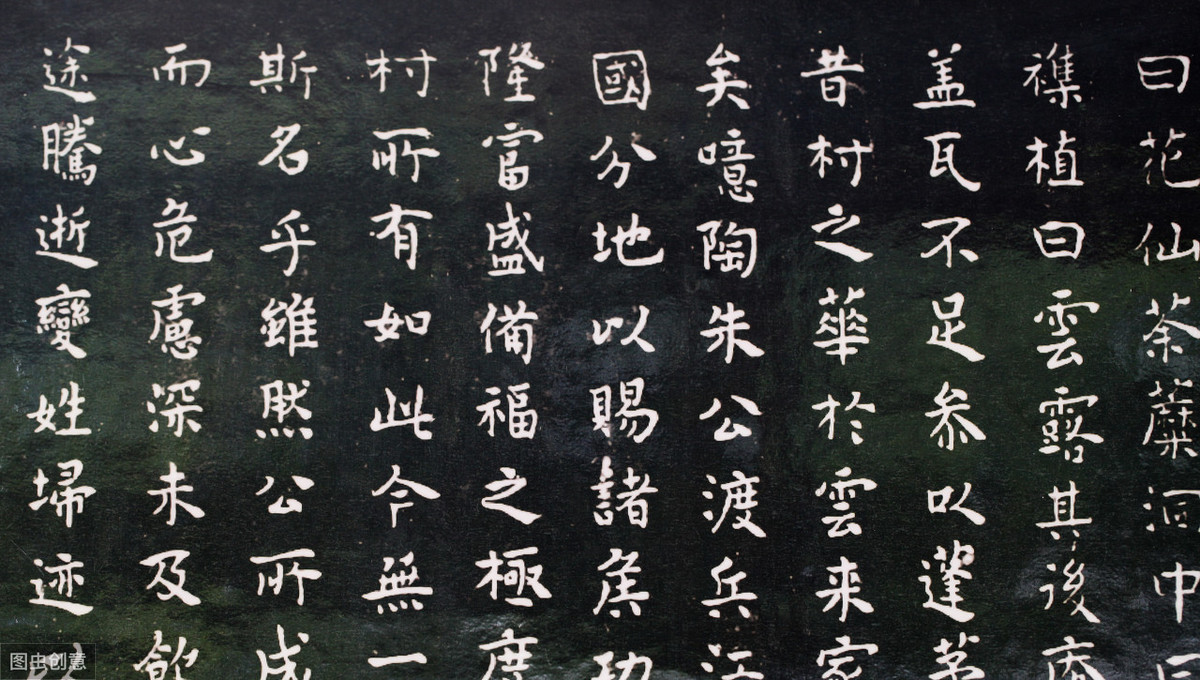 曰花仙荼蘼洞中
襍植曰雲露其後
盖瓦不足叅以蓬茅
昔村之華於雲来家
矣噫陶朱公渡兵江
國分地以賜諸侯功
隆富盛備福之極度
村所有如此今無一
斯名乎雖然公所成
而心危慮深未及飲
途騰逝變姓埽迹
图虫创意